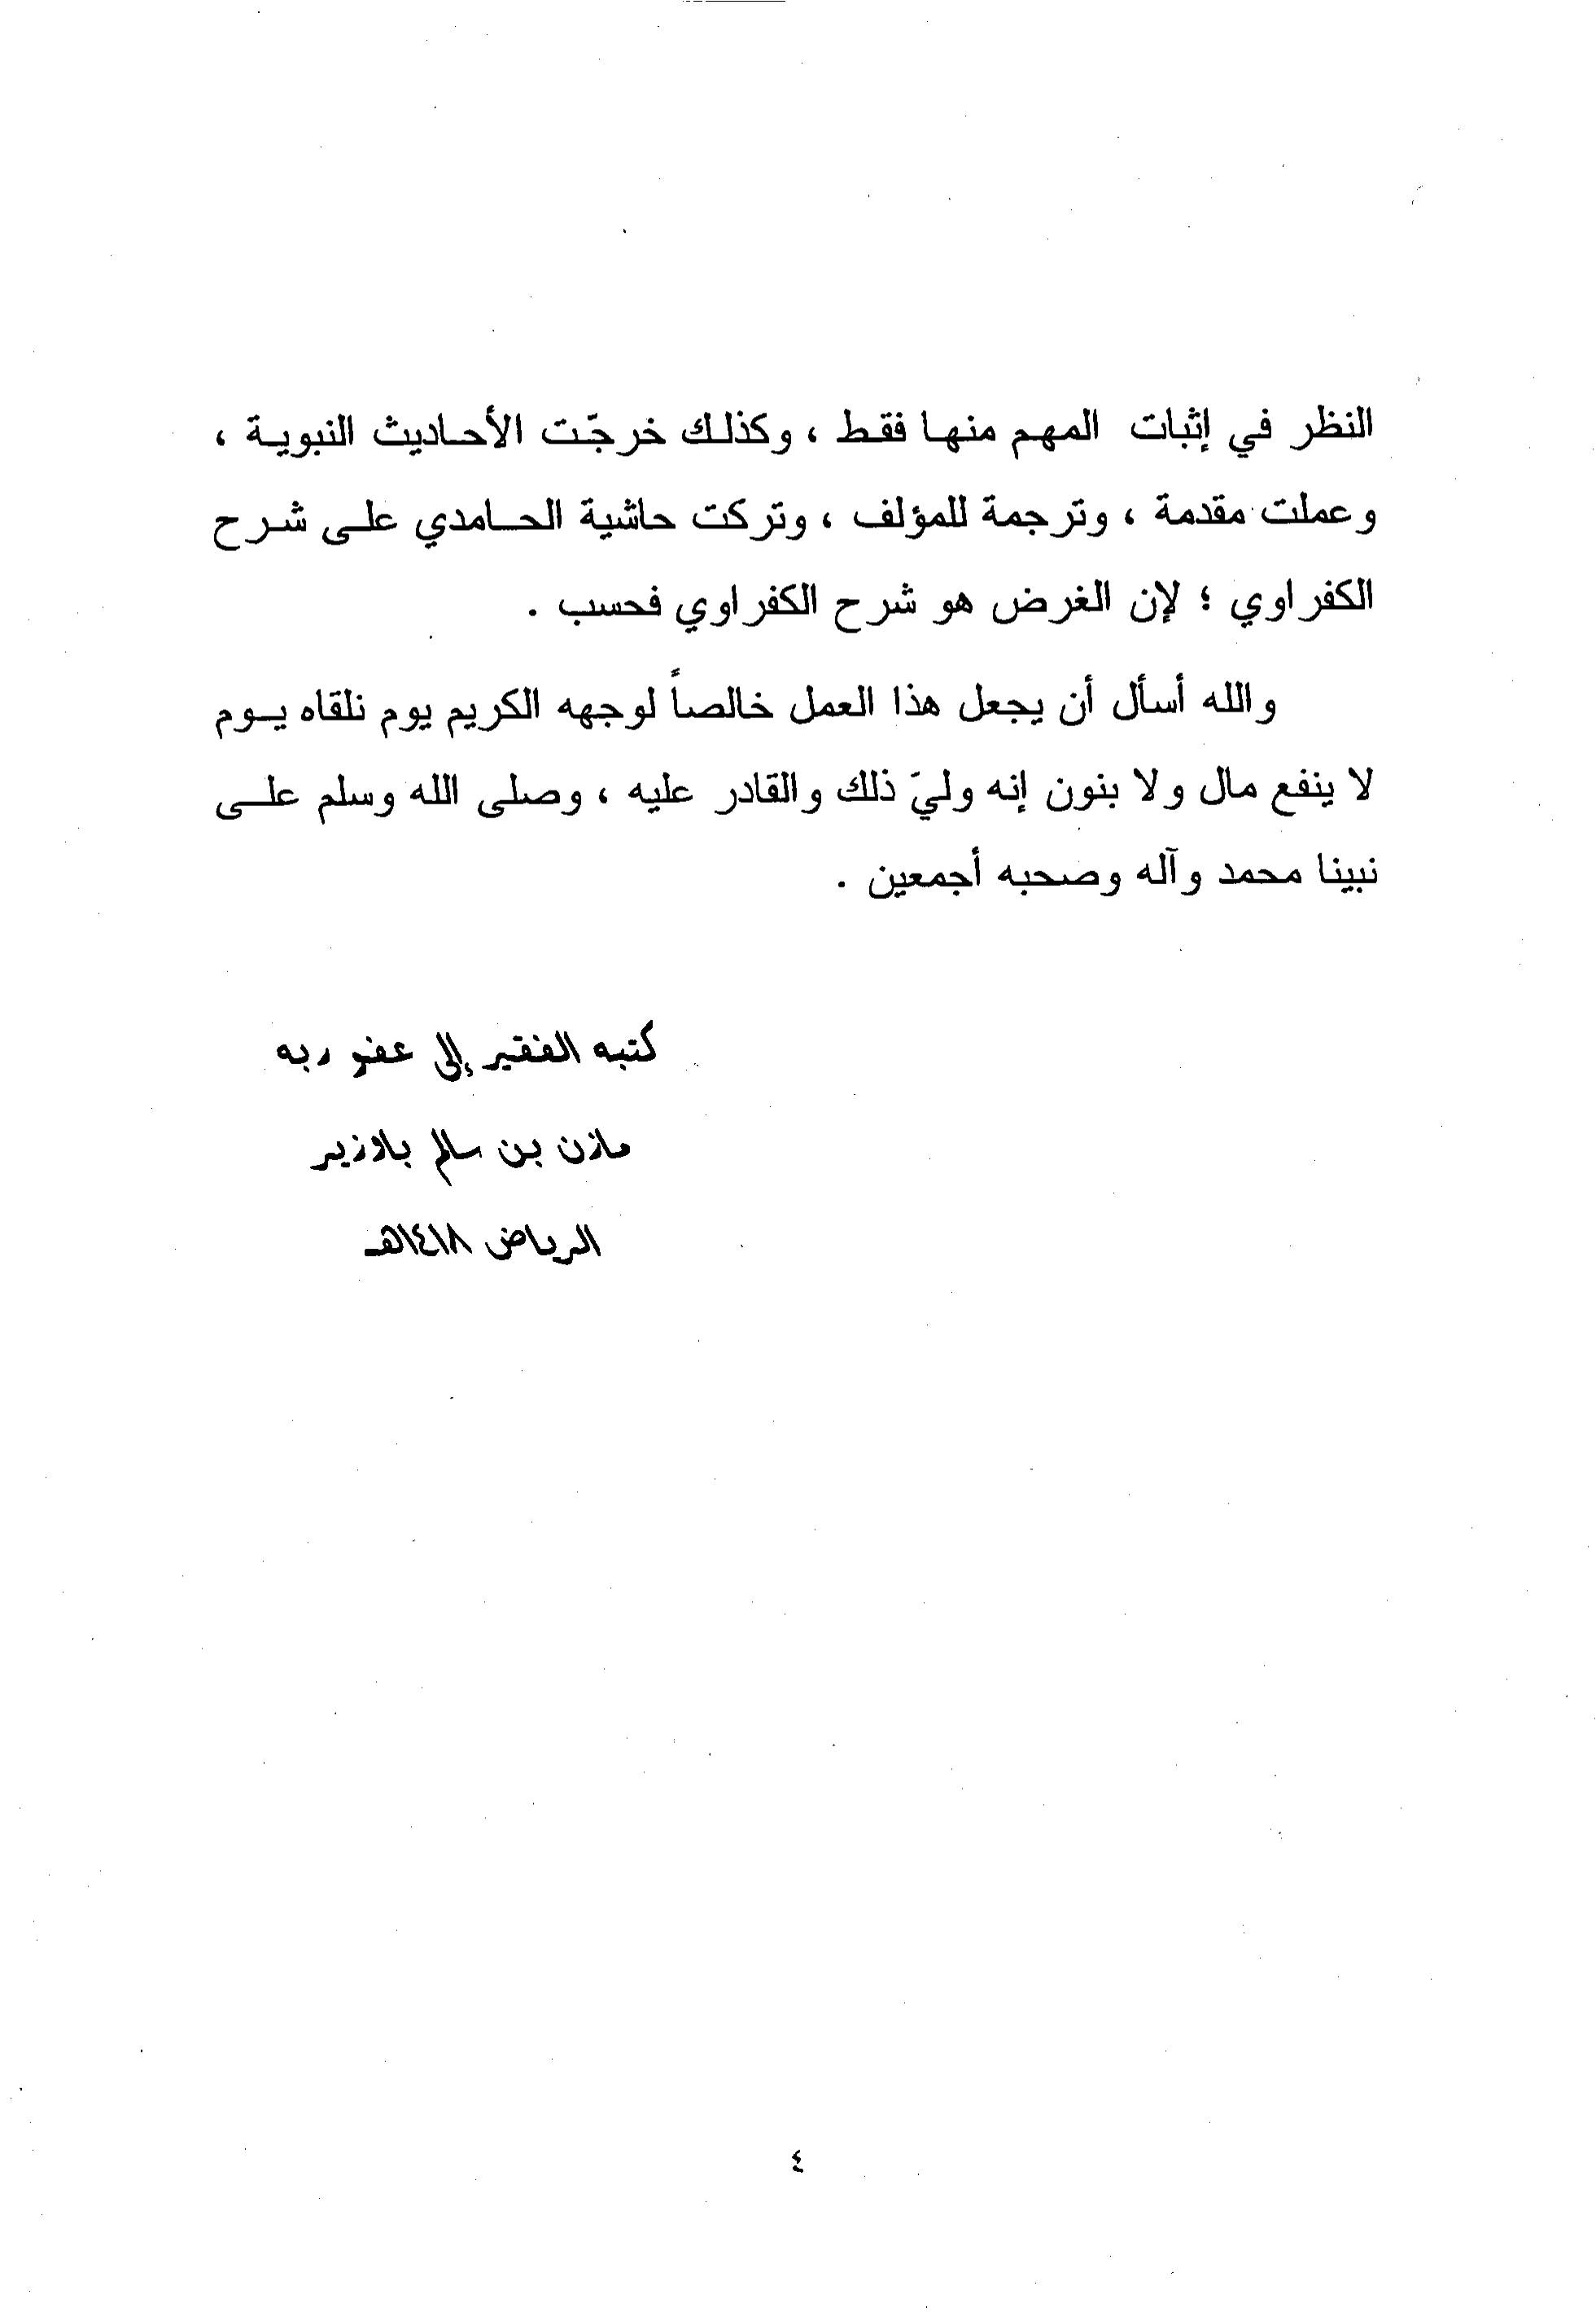 النظر في إثبات المهم منها فقط ، وكذلك خرجّت الأحاديث النبوية ،
وعملت مقدمة ، وترجمة للمؤلف ، وتركت حاشية الحامدي على شرح
الكفراوي ؛ لإن الغرض هو شرح الكفراوي فحسب .
والله أسأل أن يجعل هذا العمل خالصاً لوجهه الكريم يوم نلقاه يوم
لا ينفع مال ولا بنون إنه وليّ ذلك والقادر عليه ، وصلى الله وسلم على
نبينا محمد وآله وصحبه أجمعين .
كتبه الفقير إلى عفو ربه
مازن بن سالم باوزير
الرياض ١٤١٨هـ
٤